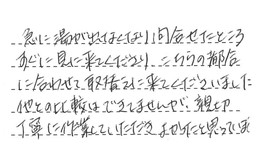 急に湯が出なくなり問合せたところ
すぐに見に来てくださり こちらの都合
に合わせて取替えに来てくださいました
他との比較はできませんが、親切
丁寧に作業していただきよかったと思っています